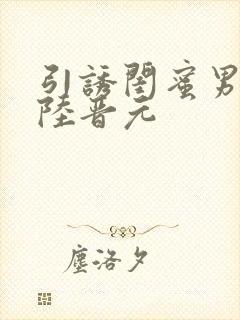 引誘閨蜜男
陸晉元
塵洛夕